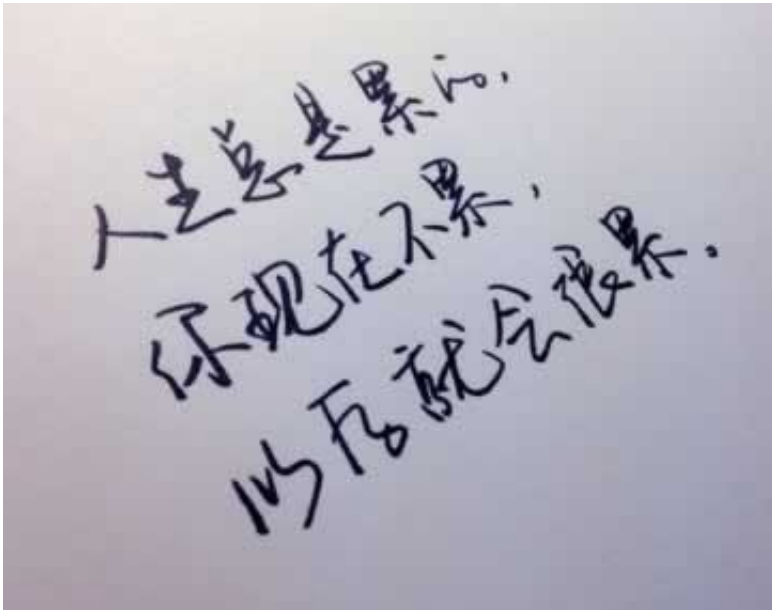 人生总是累的,
你现在不累,
以后就会很累。